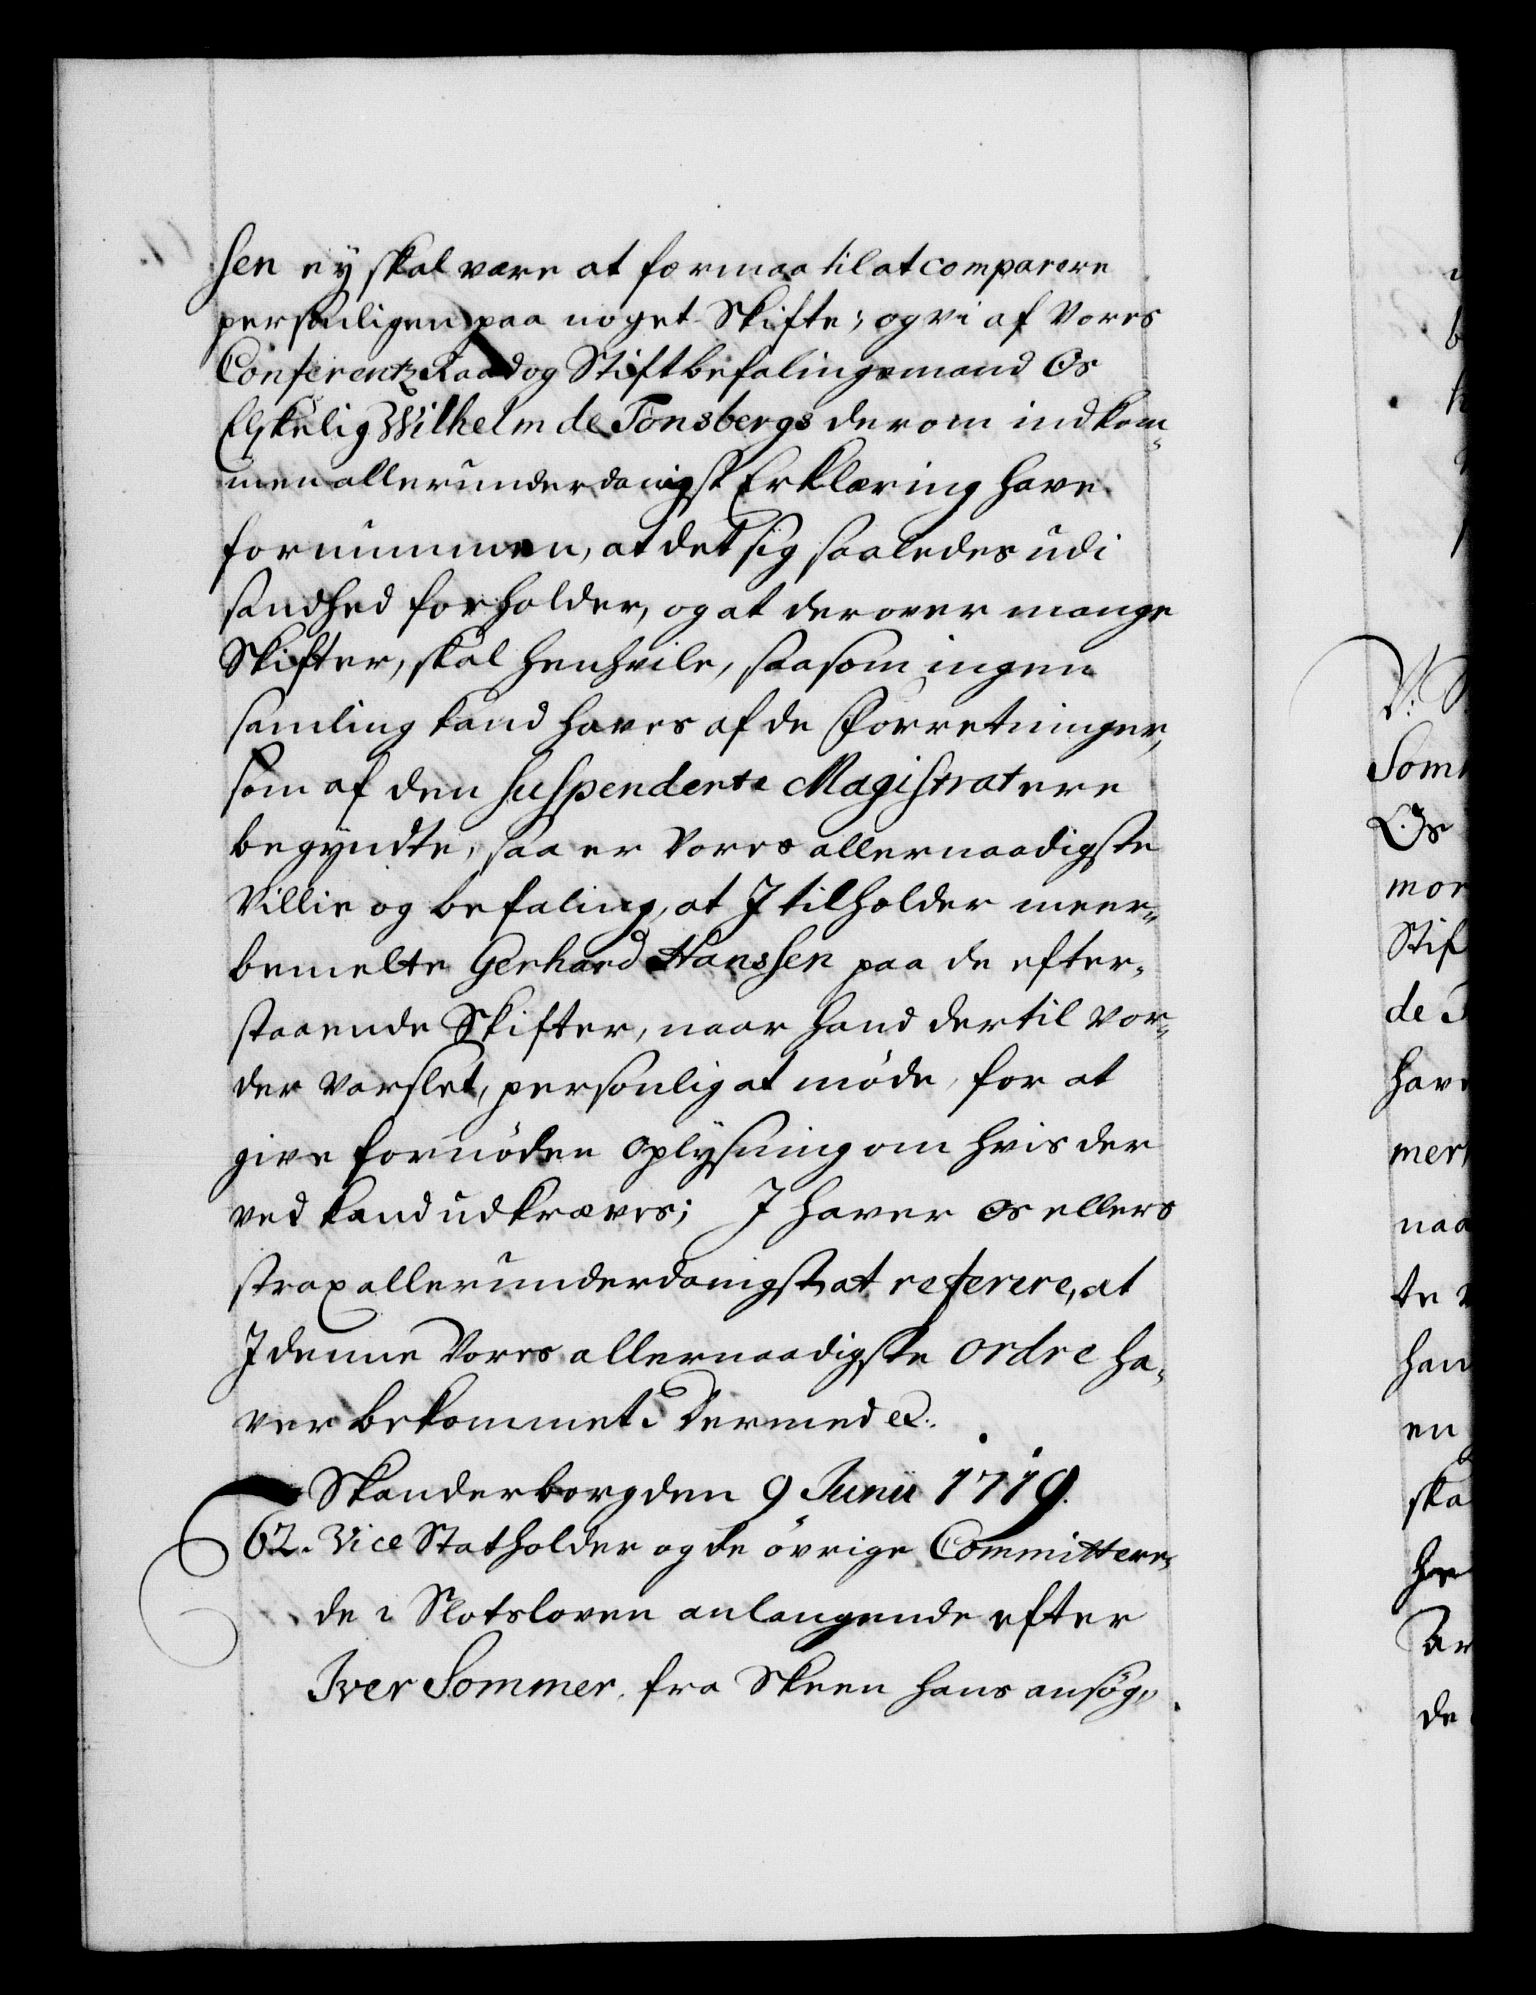 sen ey skal være at formaa til at comparere
personligen paa noget Skifte; og vi af Vores
Conferentz Raad og Stiftbefalingsmand Os
Elskelig Wilhelm de Tonsbergs derom indkom„
men allerunderdanigst Erklæring have
fornummen, at det sig saaledes udi
sandhed forholder, og at derover mange
Skifter, skal henhvile, saasom ingen
samling kand haves af de Forretninger,
som af den suspenderte Magistrat ere
begyndte, saa er Vores allernaadigste
Villie og befaling, at I tilholder meer„
bemelte Gerhard Hanssen paa de efter„
staaende Skifter, naar hand dertil vor„
der varslet, personlig at møde, for at
give fornøden Oplysning om hvis der
ved kand udkræves; I haver Os ellers
strax allerunderdanigst at referere, at
I denne Vores allernaadigste ordre ha„
ver bekommet. Dermed &.
Skanderborg den 9 Junii 1719.
62. Vice Statholder og de øvrige Committere„
de i Slotsloven anlangende efter
Iver Sommer fra Skeen hans ansøg„
V: S
Som
Os
mor
Stif
de T
hav
mer
naa
te
han
en
ska
de